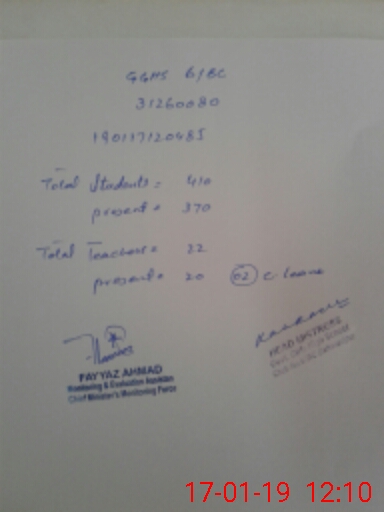 GGHS 6/BC
31260080
190117120485
Total Students = 410
present = 370
Total Teachers = 22
present = 20 02 C. leave
FAYYAZ AHMAD
Monitoring & Evaluation Assistant
Chief Minister's Monitoring Force
HEAD MISTRESS
17-01-19 12:10